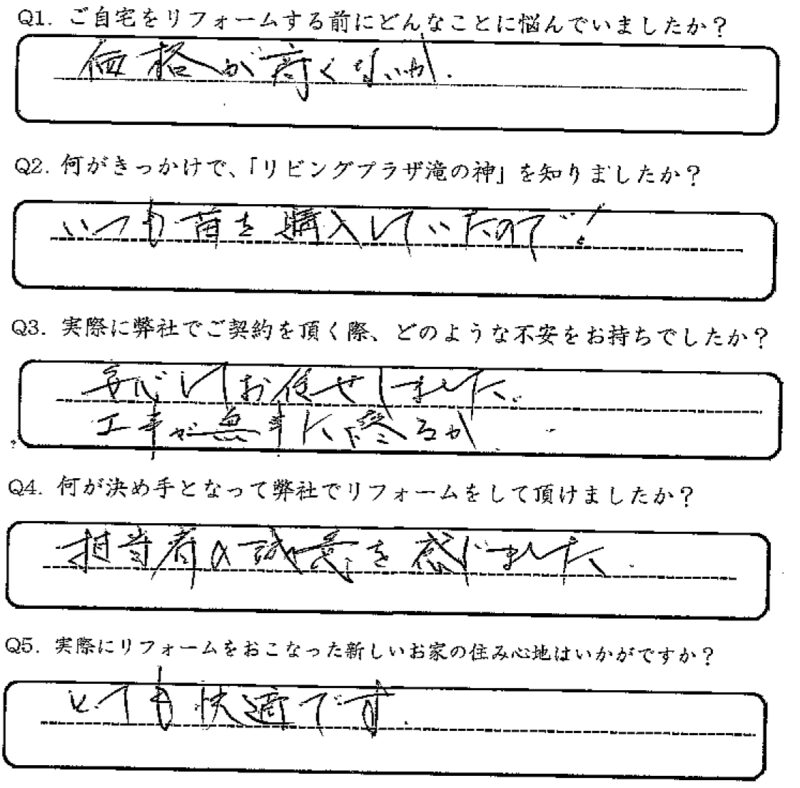 Q1. ご自宅をリフォームする前にどんなことに悩んでいましたか？
価格が高くないか.
Q2. 何がきっかけで、「リビングプラザ滝の神」を知りましたか？
いつも苗を購入していたので!
Q3. 実際に弊社でご契約を頂く際、どのような不安をお持ちでしたか？
安心してお任せしました。
工事が無事に終るか
Q4. 何が決め手となって弊社でリフォームをして頂けましたか？
担当者の誠意を感じました.
Q5. 実際にリフォームをおこなった新しいお家の住み心地はいかがですか？
とても快適です.